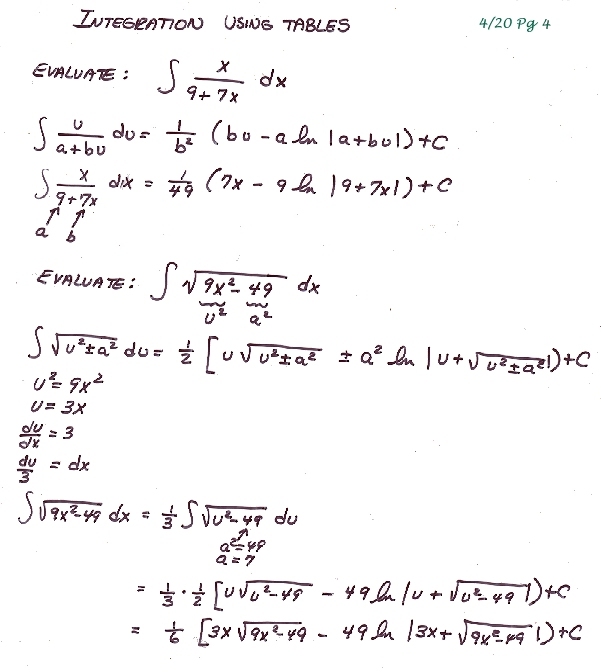 INTEGRATION USING TABLES 4/20 Pg 4
EVALUATE: ∫ x/(9+7x) dx
∫ u/(a+bu) du = 1/b² (bu - a ln |a+bu|) + C
∫ x/(9+7x) dx = 1/49 (7x - 9 ln |9+7x|) + C
a b
EVALUATE: ∫ √(9x² - 49) dx
u² a²
∫ √(u² ± a²) du = 1/2 [u √(u² ± a²) ± a² ln |u + √(u² ± a²)|) + C
u² = 9x²
u = 3x
du/dx = 3
du/3 = dx
∫ √(9x² - 49) dx = 1/3 ∫ √(u² - 49) du
a² = 49
a = 7
= 1/3 · 1/2 [u √(u² - 49) - 49 ln |u + √(u² - 49)|) + C
= 1/6 [3x √(9x² - 49) - 49 ln |3x + √(9x² - 49)|) + C